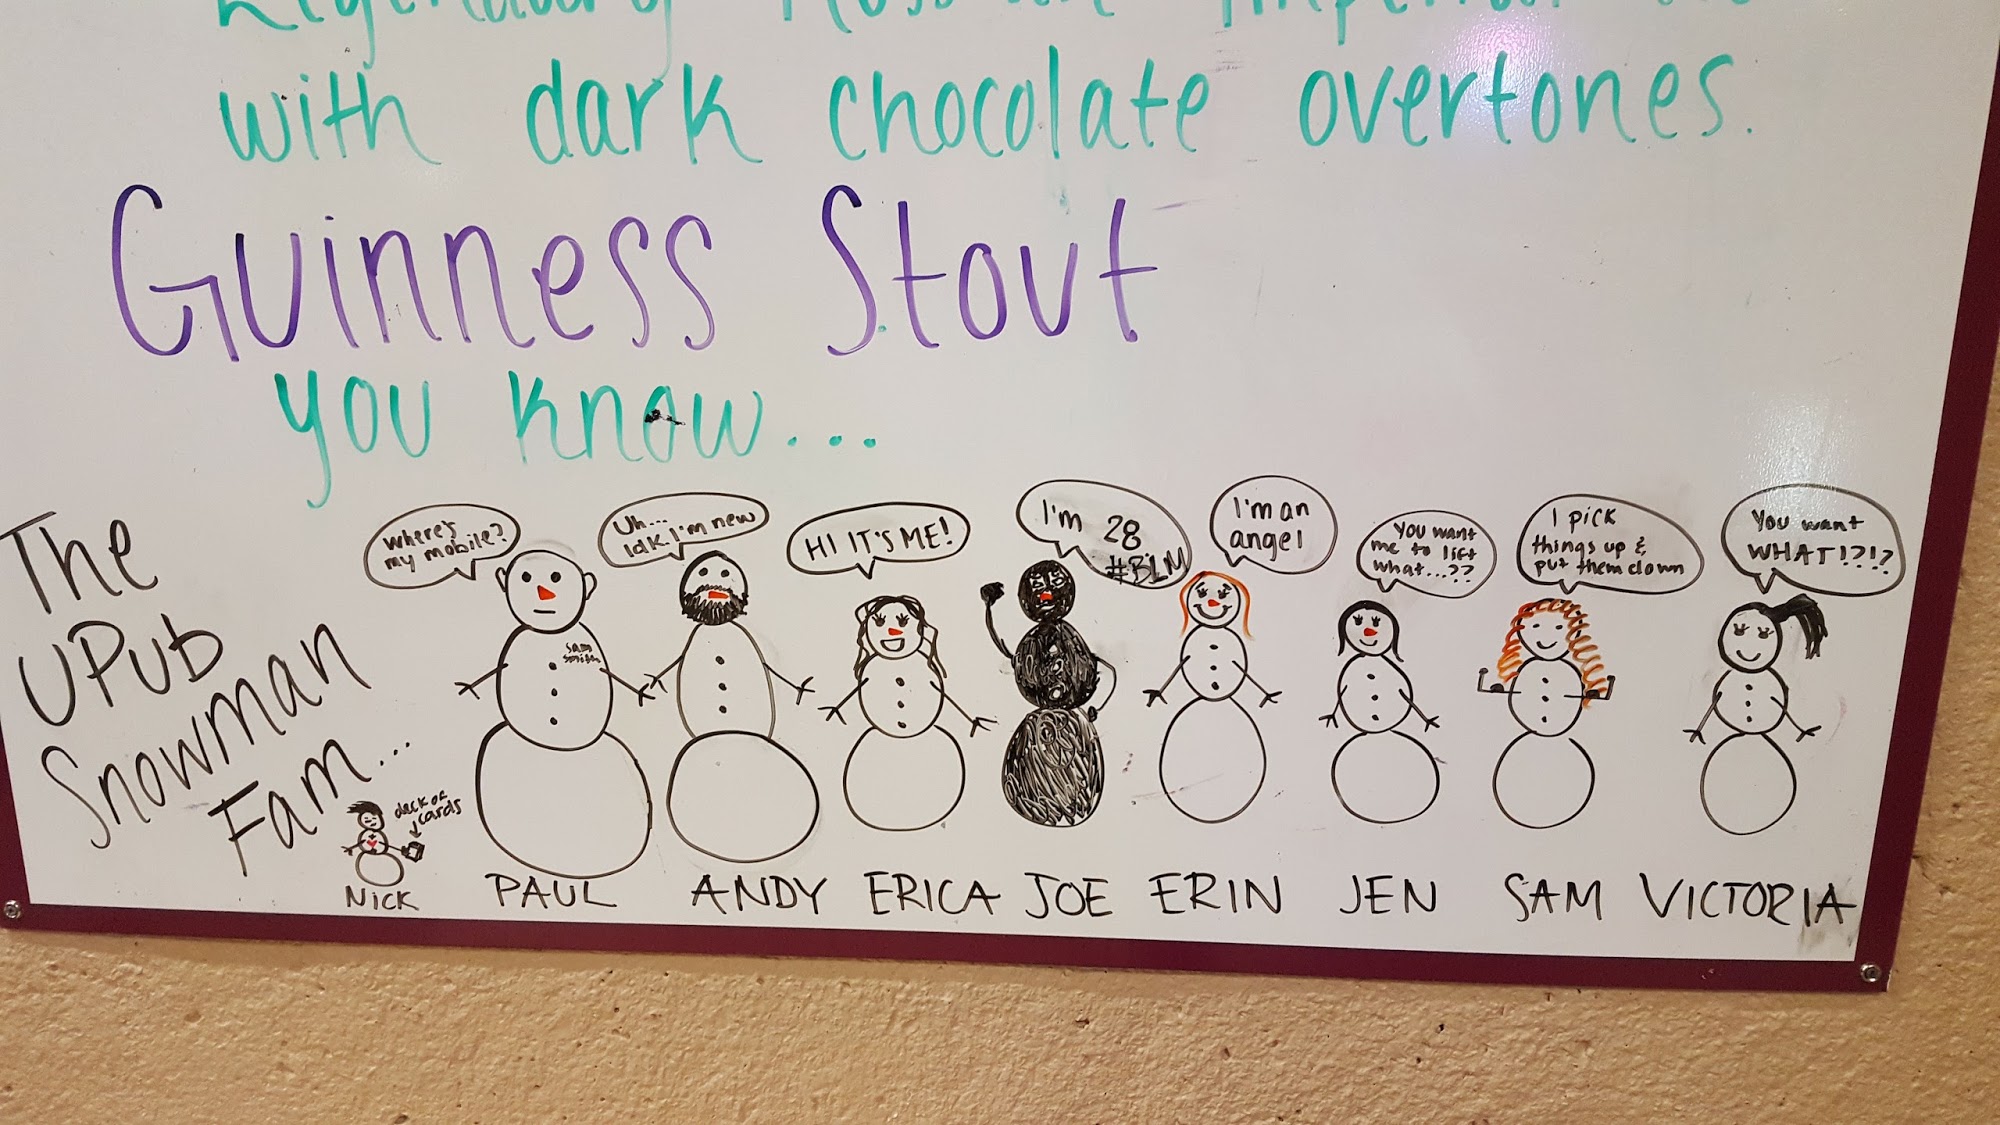 with dark chocolate overtones.
Guinness Stout
you know...
The
UPub
Snowman
Fam...
where's
my mobile?
Uh...
Idk. I'm new
HI IT'S ME!
I'm 28
#BLM
I'm an
angel
You want
me to lift
what...??
I pick
things up &
put them down
You want
WHAT!?!?
deck of
cards
NICK
PAUL
ANDY
ERICA
JOE
ERIN
JEN
SAM
VICTORIA